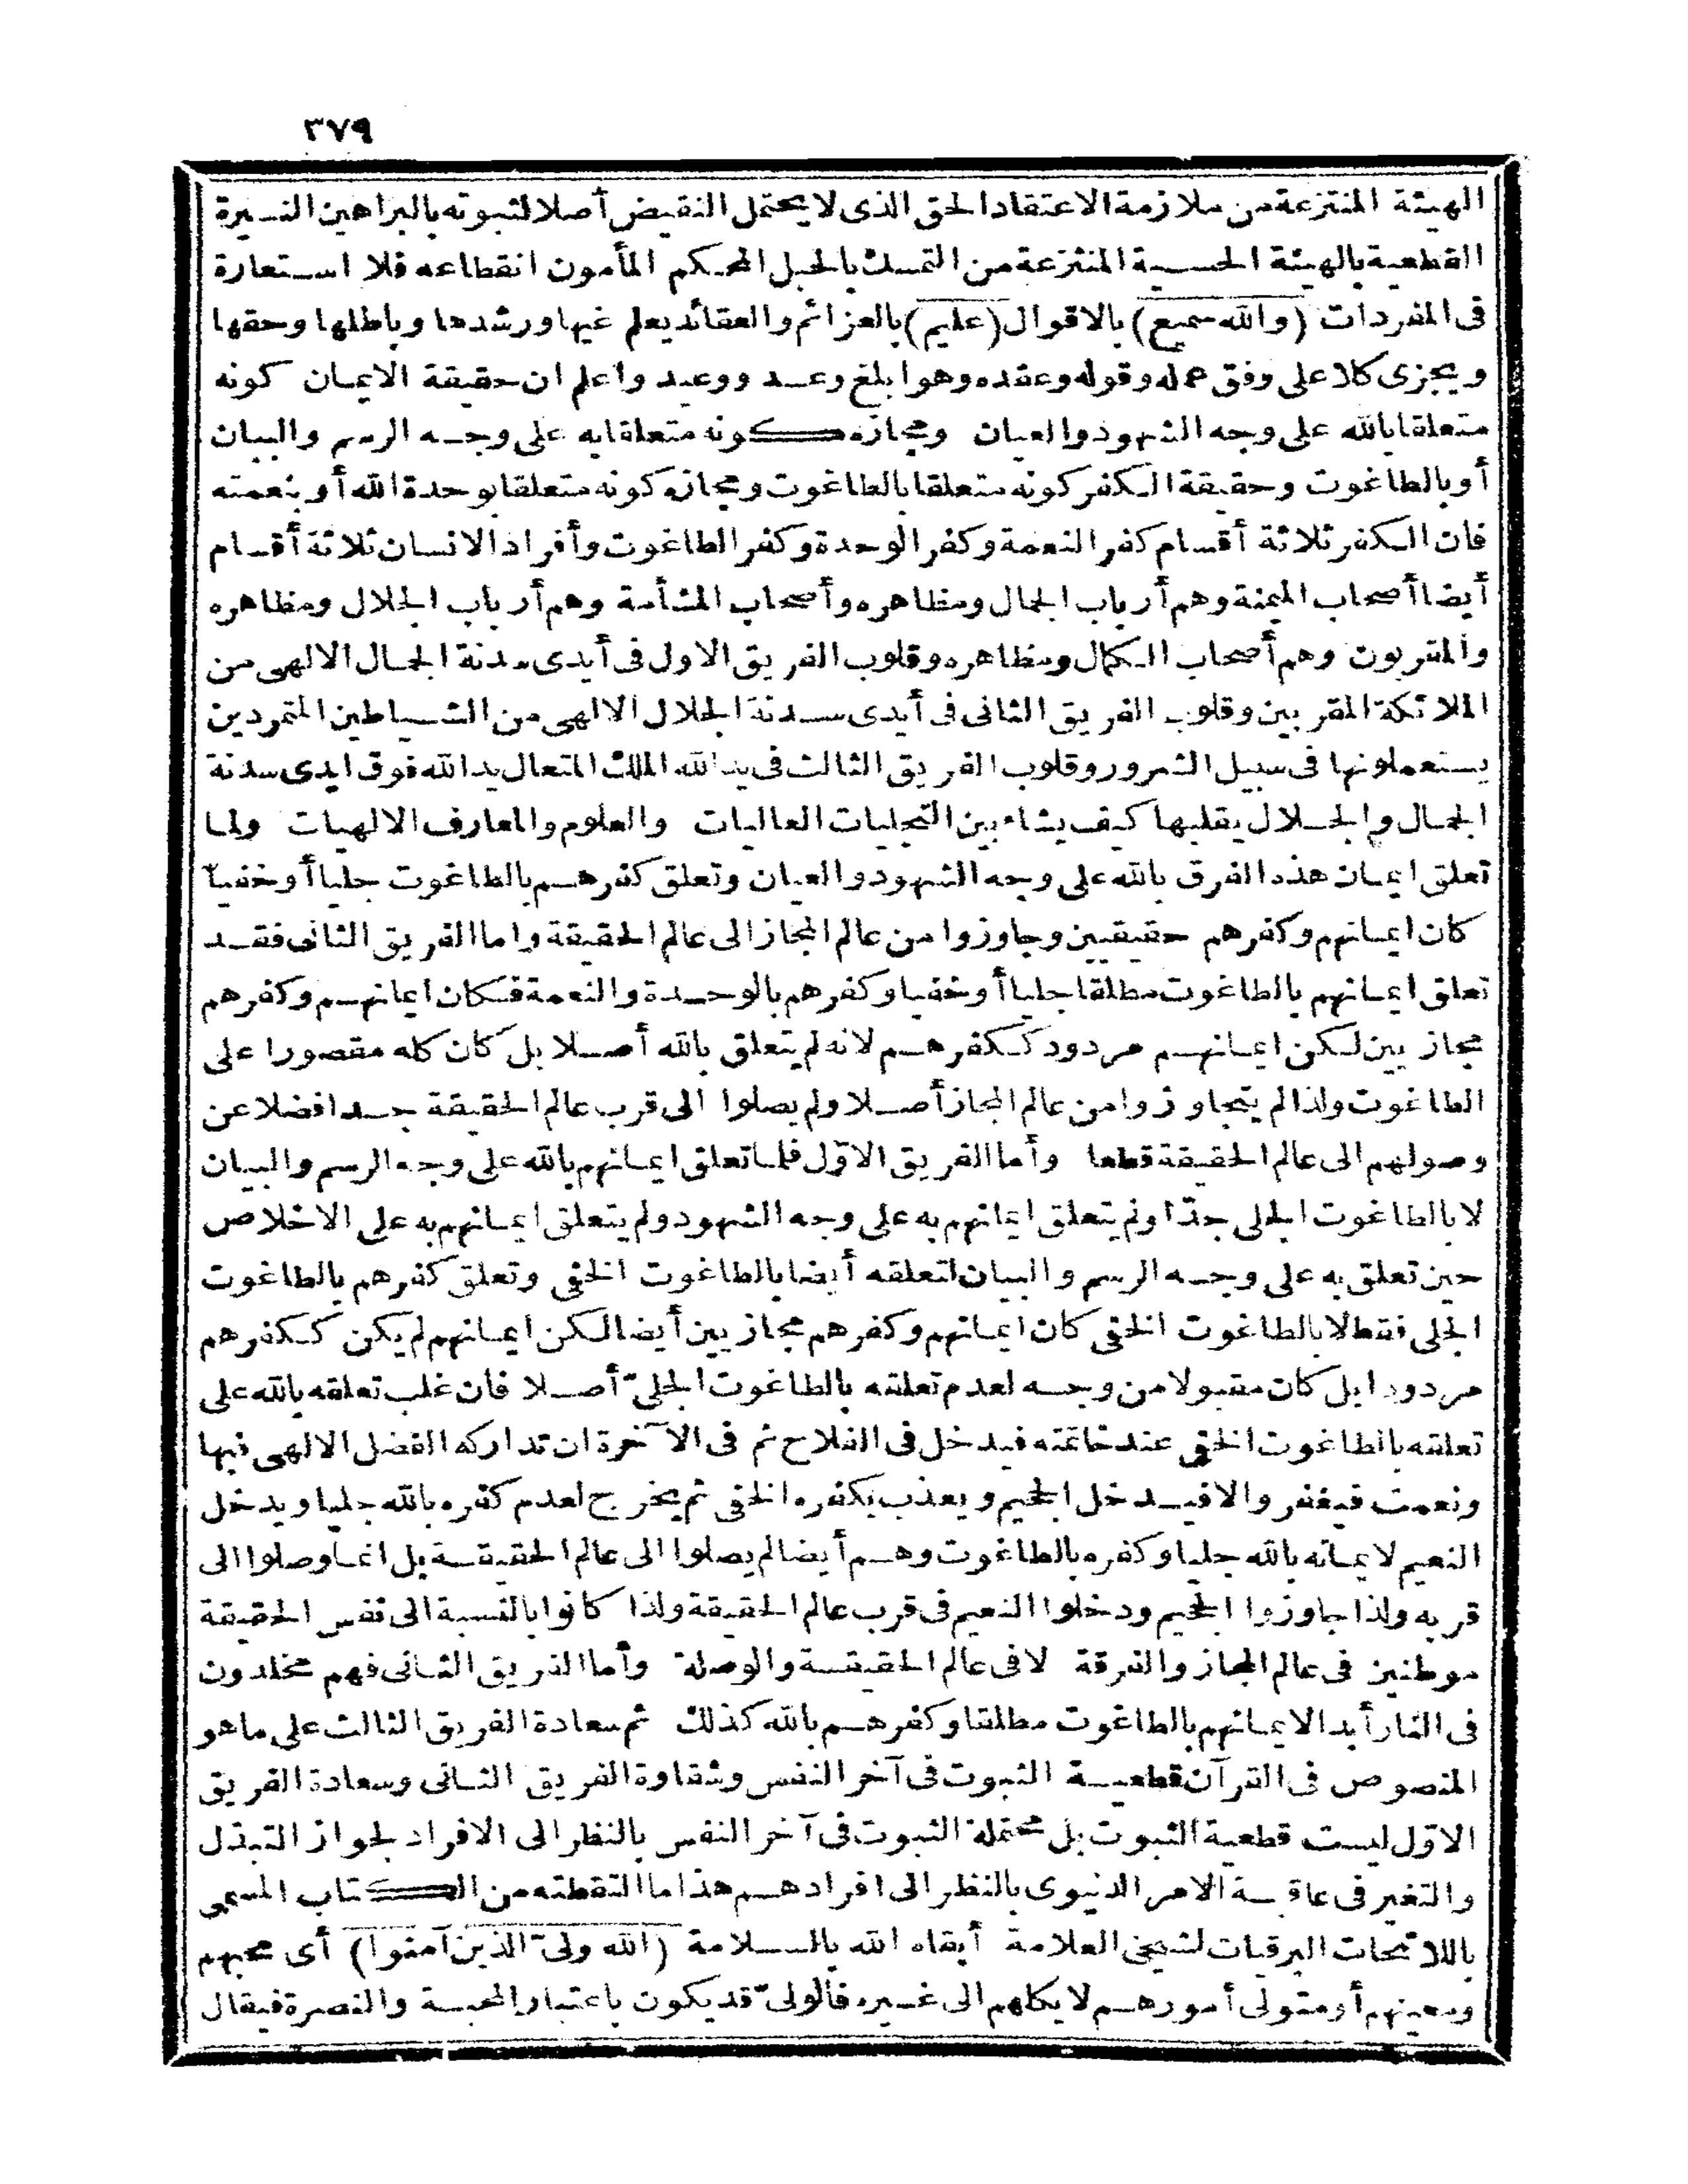 ٣٧٩
الهيئة المنتزعة من ملازمة الاعتقاد الحق الذى لا يحتمل النقيض أصلا لثبوته بالبراهين النسيرة
القطعية بالهيئة الحسية المنتزعة من التمسك بالحبل المحكم المأمون انقطاعه فلا استعارة
فى المفردات (والله سميع) بالاقوال (عليم) بالعزائم والعقائد يعلم غيها ورشدها وباطلها وحقها
ويجزى كلا على وفق عمله وقوله وعقده وهو ابلغ وعد ووعيد واعلم ان حقيقة الايمان كونه
متعلقا بالله على وجه الشهود والعيان ومجازه كونه متعلقا به على وجه الرسم والبيان
أو بالطاغوت وحقيقة الكفر كونه متعلقا بالطاغوت ومجازه كونه متعلقا بوحدة الله أو بنعمته
فان الكفر ثلاثة أقسام كفر النعمة وكفر الوحدة وكفر الطاغوت وأفراد الانسان ثلاثة أقسام
أيضا أصحاب الميمنة وهم أرباب الجمال ومظاهره وأصحاب المشأمة وهم أرباب الجلال ومظاهره
والمقربون وهم أصحاب الكمال ومظاهره وقلوب الفريق الاول فى أيدى سدنة الجمال الالهى من
الملائكة المقربين وقلوب الفريق الثانى فى أيدى سدنة الجلال الالهى من الشياطين المتمردين
يستعملونها فى سبيل الشرور وقلوب الفريق الثالث فى يد الله الملك المتعال يد الله فوق ايدى سدنة
الجمال والجلال يقلبها كيف يشاء بين التجليات العاليات والعلوم والمعارف الالهيات ولما
تعلق ايمان هذه الفرق بالله على وجه الشهود والعيان وتعلق كفرهم بالطاغوت جليا أو خفيا
كان ايمانهم وكفرهم حقيقيين وجاوزوا من عالم المجاز الى عالم الحقيقة واما الفريق الثانى فقد
تعلق ايمانهم بالطاغوت مطلقا جليا أو خفيا وكفرهم بالوحدة والنعمة فكان ايمانهم وكفرهم
مجازيين لكن ايمانهم مردود ككفرهم لانه لم يتعلق بالله أصلا بل كان كله مقصورا على
الطاغوت ولذا لم يتجاوزوا من عالم المجاز أصلا ولم يصلوا الى قرب عالم الحقيقة جدا فضلا عن
وصولهم الى عالم الحقيقة قطعا وأما الفريق الاوّل فلما تعلق ايمانهم بالله على وجه الرسم والبيان
لا بالطاغوت الجلى جدّا ولم يتعلق ايمانهم به على وجه الشهود ولم يتعلق ايمانهم به على الاخلاص
حين تعلق به على وجه الرسم والبيان لتعلقه أيضا بالطاغوت الخفى وتعلق كفرهم بالطاغوت
الجلى فقط لا بالطاغوت الخفى كان ايمانهم وكفرهم مجازيين أيضا لكن ايمانهم لم يكن ككفرهم
مردودا بل كان مقبولا من وجه لعدم تعلقه بالطاغوت الجلىّ أصلا فان غلب تعلقه بالله على
تعلقه بالطاغوت الخفى عند خاتمته فيدخل فى الفلاح ثم فى الآخرة ان تداركه الفضل الالهى فبها
ونعمت فيغفر والا فيدخل الجحيم ويعذب بكفره الخفى ثم يخرج لعدم كفره بالله جليا ويدخل
النعيم لايمانه بالله جليا وكفره بالطاغوت وهم أيضا لم يصلوا الى عالم الحقيقة بل انما وصلوا الى
قربه ولذا جاوزوا الجحيم ودخلوا النعيم فى قرب عالم الحقيقة ولذا كانوا بالنسبة الى نفس الحقيقة
موطنين فى عالم المجاز والفرقة لا فى عالم الحقيقة والوصلة وأما الفريق الثانى فهم مخلدون
فى النار أبدا لايمانهم بالطاغوت مطلقا وكفرهم بالله كذلك ثم سعادة الفريق الثالث على ما هو
المنصوص فى القرآن قطعية الثبوت فى آخر النفس وشقاوة الفريق الثانى وسعادة الفريق
الاوّل ليست قطعية الثبوت بل محتملة الثبوت فى آخر النفس بالنظر الى الافراد لجواز التبدّل
والتغير فى عاقبة الامر الدنيوى بالنظر الى افرادهم هذا ما التقطته من الكتاب المسمى
باللائحات البرقيات لشيخى العلامة أبقاه الله بالسلامة (الله ولىّ الذين آمنوا) أى محبهم
ومعينهم أو متولى أمورهم لا يكلهم الى غيره فالولىّ قد يكون باعتبار المحبة والنصرة فيقال